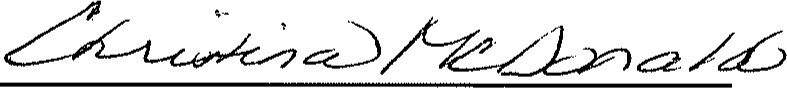 Christina McDonald